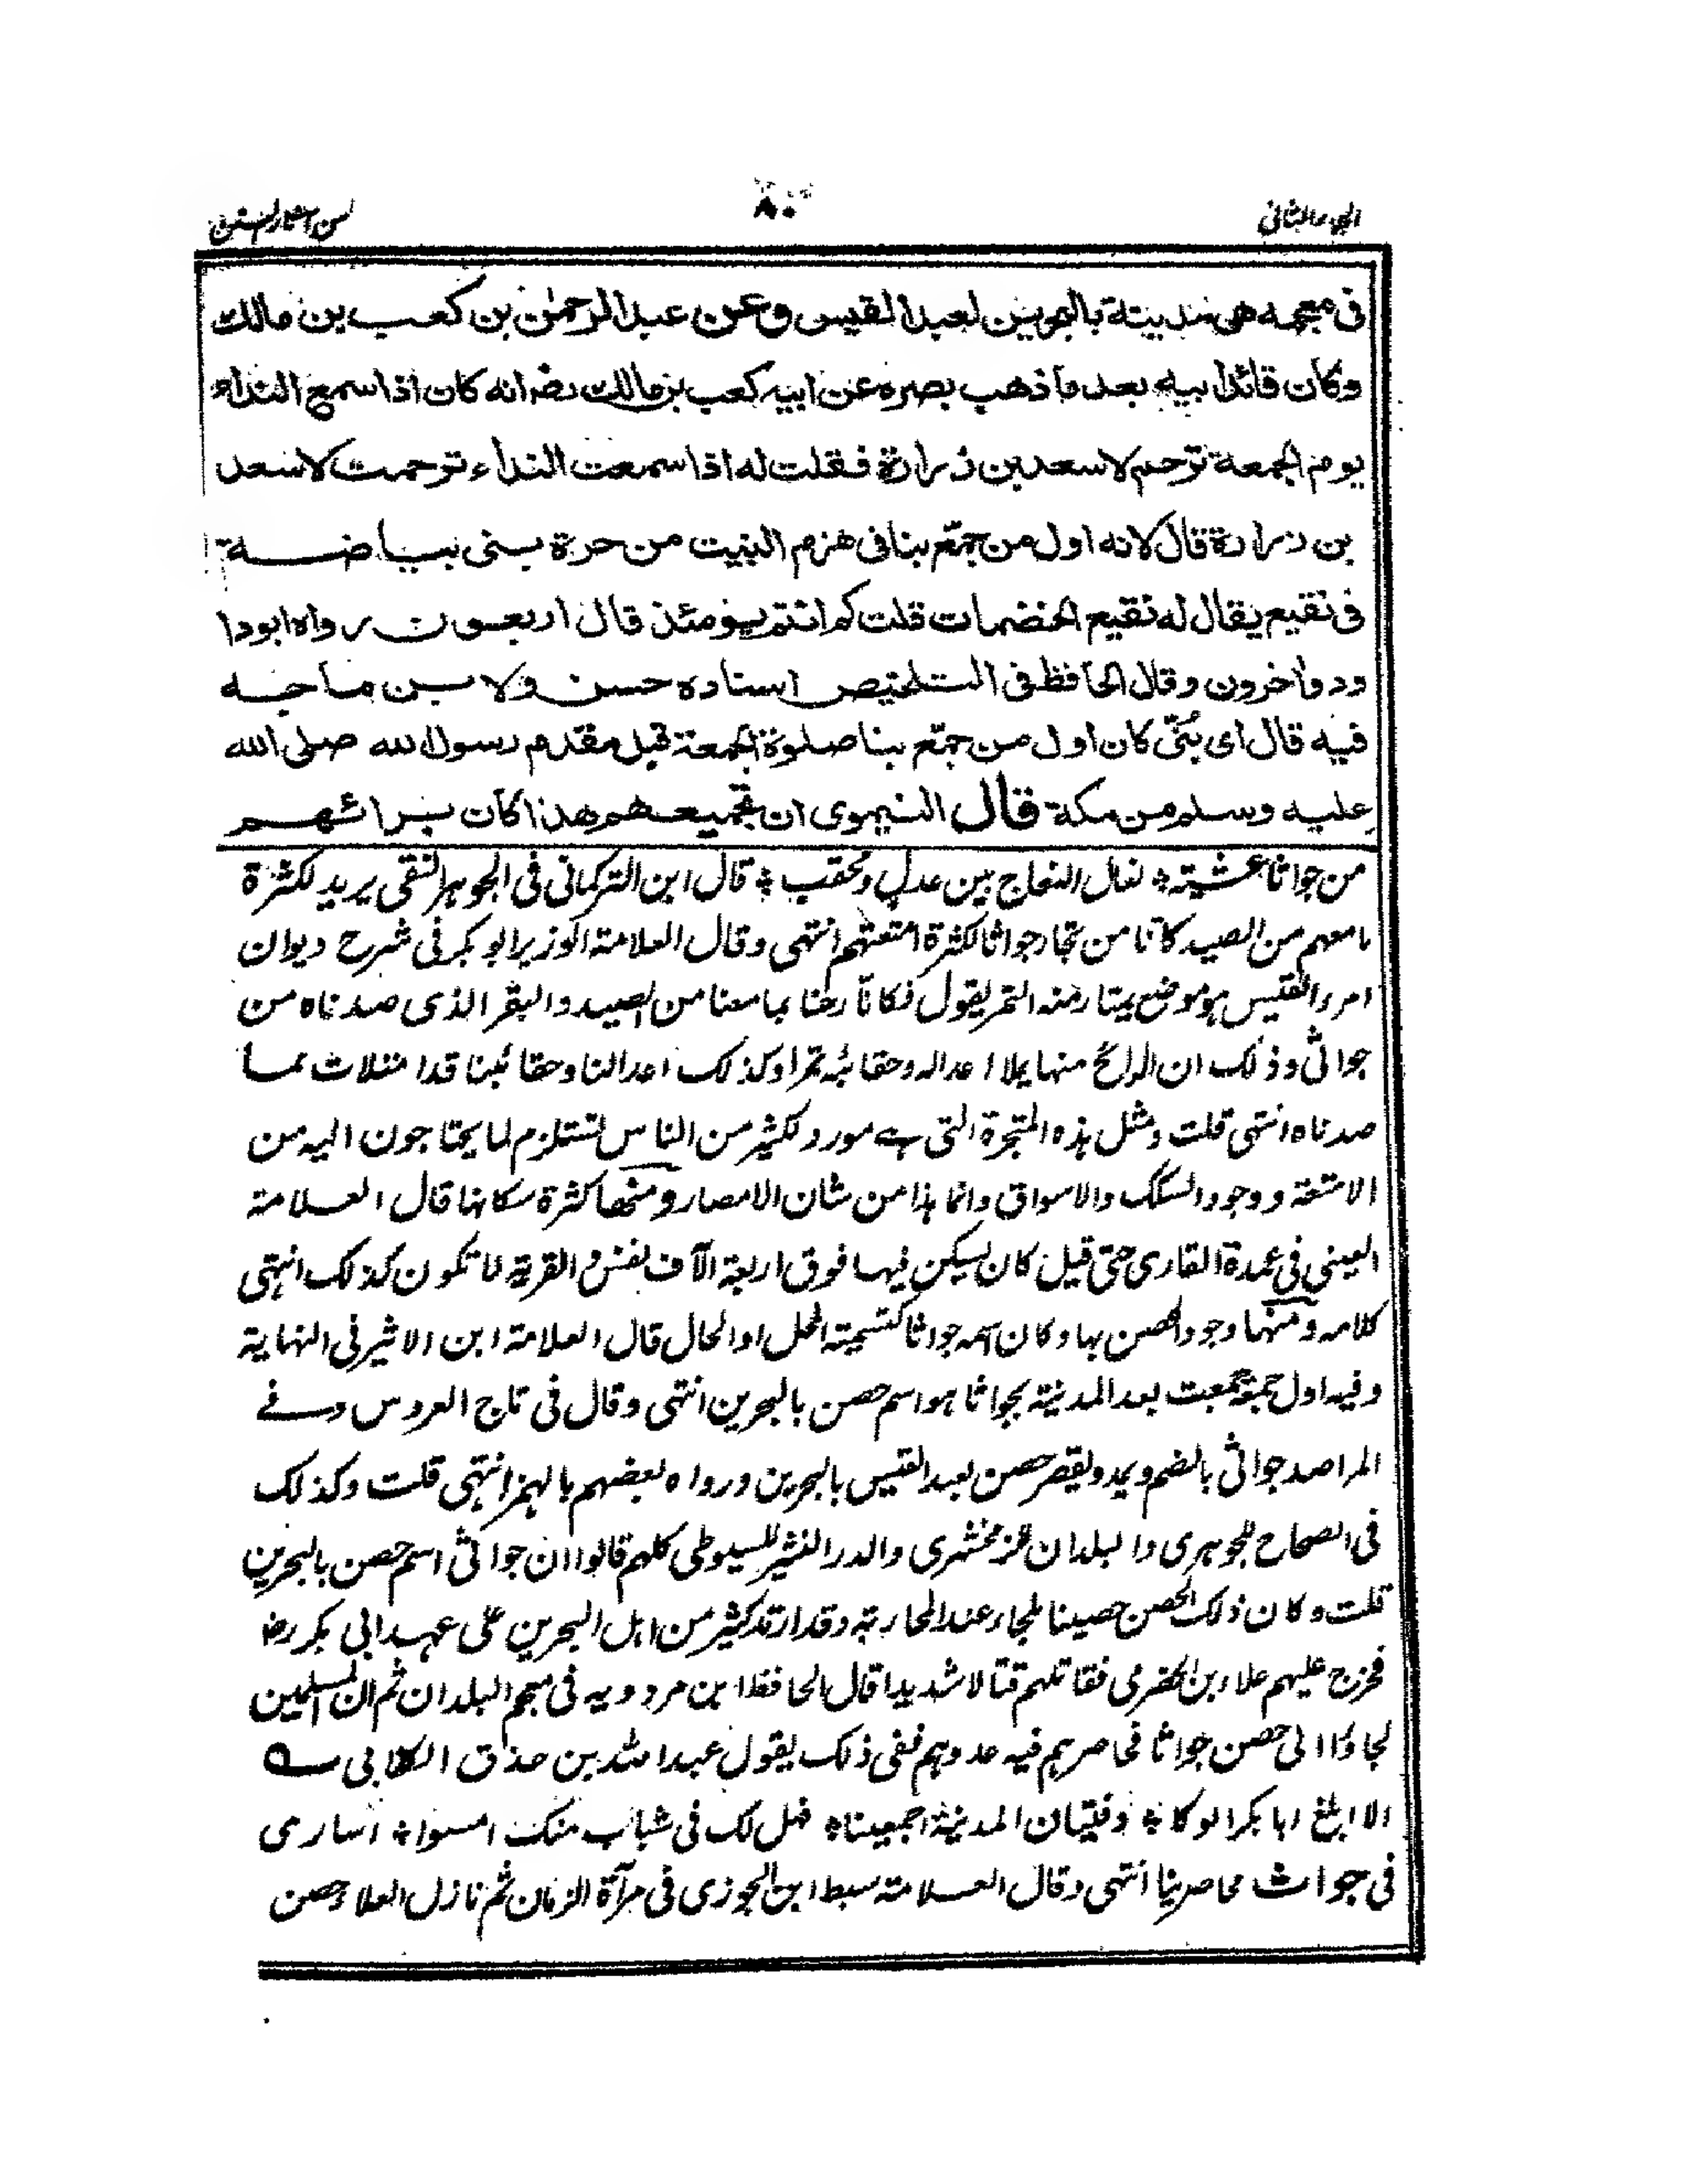 الجزء الثاني
٨٠
من آثار السنن
في معجمه هي مدينة بالبحرين لعبد القيس وعن عبد الرحمن بن كعب بن مالك
وكان قائد ابيه بعد ما ذهب بصره عن ابيه كعب بن مالك رضـ انه كان اذا سمع النداء
يوم الجمعة ترحم لاسعد بن زرارة فقلت له اذا سمعت النداء ترحمت لاسعد
بن زرارة قال لانه اول من جمّع بنا في هزم النبيت من حرة بني بياضة
في نقيع يقال له نقيع الخضمات قلت كم انتم يومئذ قال اربعون رواه ابودا
ود وآخرون وقال الحافظ في التلخيص اسناده حسن ولابن ماجه
فيه قال اى بُنَيّ كان اول من جمّع بنا صلوة الجمعة قبل مقدم رسول الله صلى الله
عليه وسلم من مكة قال النيموى ان تجميعهم هذا كان برائهم
من جواثا عشية * نعال النعاج بين عدل ومحقب * قال ابن التركماني في الجوهر النقي يريد لكثرة
ما معهم من الصيد كانا من تجار جواثا لكثرة امتعتهم انتهى وقال العلامة الوزير ابو بكر في شرح ديوان
امرء القيس هو موضع يمتار منه التمر يقول فكانا رحنا بما معنا من الصيد والبقر الذى صدناه من
جواثى وذلك ان الرائح منها يملا اعداله وحقائبه تمرا وكذلك اعدالنا وحقائبنا قد امتلات مما
صدناه انتهى قلت ومثل هذه المتجرة التى هي مورد لكثير من الناس تستلزم لما يحتاجون اليه من
الامتعة ووجود السكك والاسواق وانما هذا من شان الامصار ومنها كثرة سكانها قال العلامة
العينى في عمدة القارى حتى قيل كان يسكن فيها فوق اربعة آلاف نفس والقرية لا تكون كذلك انتهى
كلامه ومنها وجود الحصن بها وكان اسمه جواثا كتسمية المحل او الحال قال العلامة ابن الاثير في النهاية
وفيه اول جمعة جمعت بعد المدينة بجواثا هو اسم حصن بالبحرين انتهى وقال في تاج العروس وفي
المراصد جواثى بالضم ويمد ويقصر حصن لعبد القيس بالبحرين ورواه بعضهم بالهمز انتهى قلت وكذلك
في الصحاح للجوهرى والبلدان للزمخشرى والدر النثير للسيوطى كلهم قالوا ان جواثى اسم حصن بالبحرين
قلت وكان ذلك الحصن حصينا ملجاء عند المحاربة وقد ارتد كثير من اهل البحرين على عهد ابى بكر رضـ
فخرج عليهم علاء بن الحضرمى فقاتلهم قتالا شديدا قال الحافظ ابن مردويه في معجم البلدان ثم ان المسلمين
لجاؤا الى حصن جواثا فحاصرهم فيه عدوهم ففى ذلك يقول عبد الله بن حذق الكلابى
الا ابلغ ابا بكر الوكا * وفتيان المدينة اجمعينا * فهل لك في شباب منك امسوا * اسارى
في جواث محاصرينا انتهى وقال العلامة سبط ابن الجوزى في مرآة الزمان ثم نازل العلاء حصن